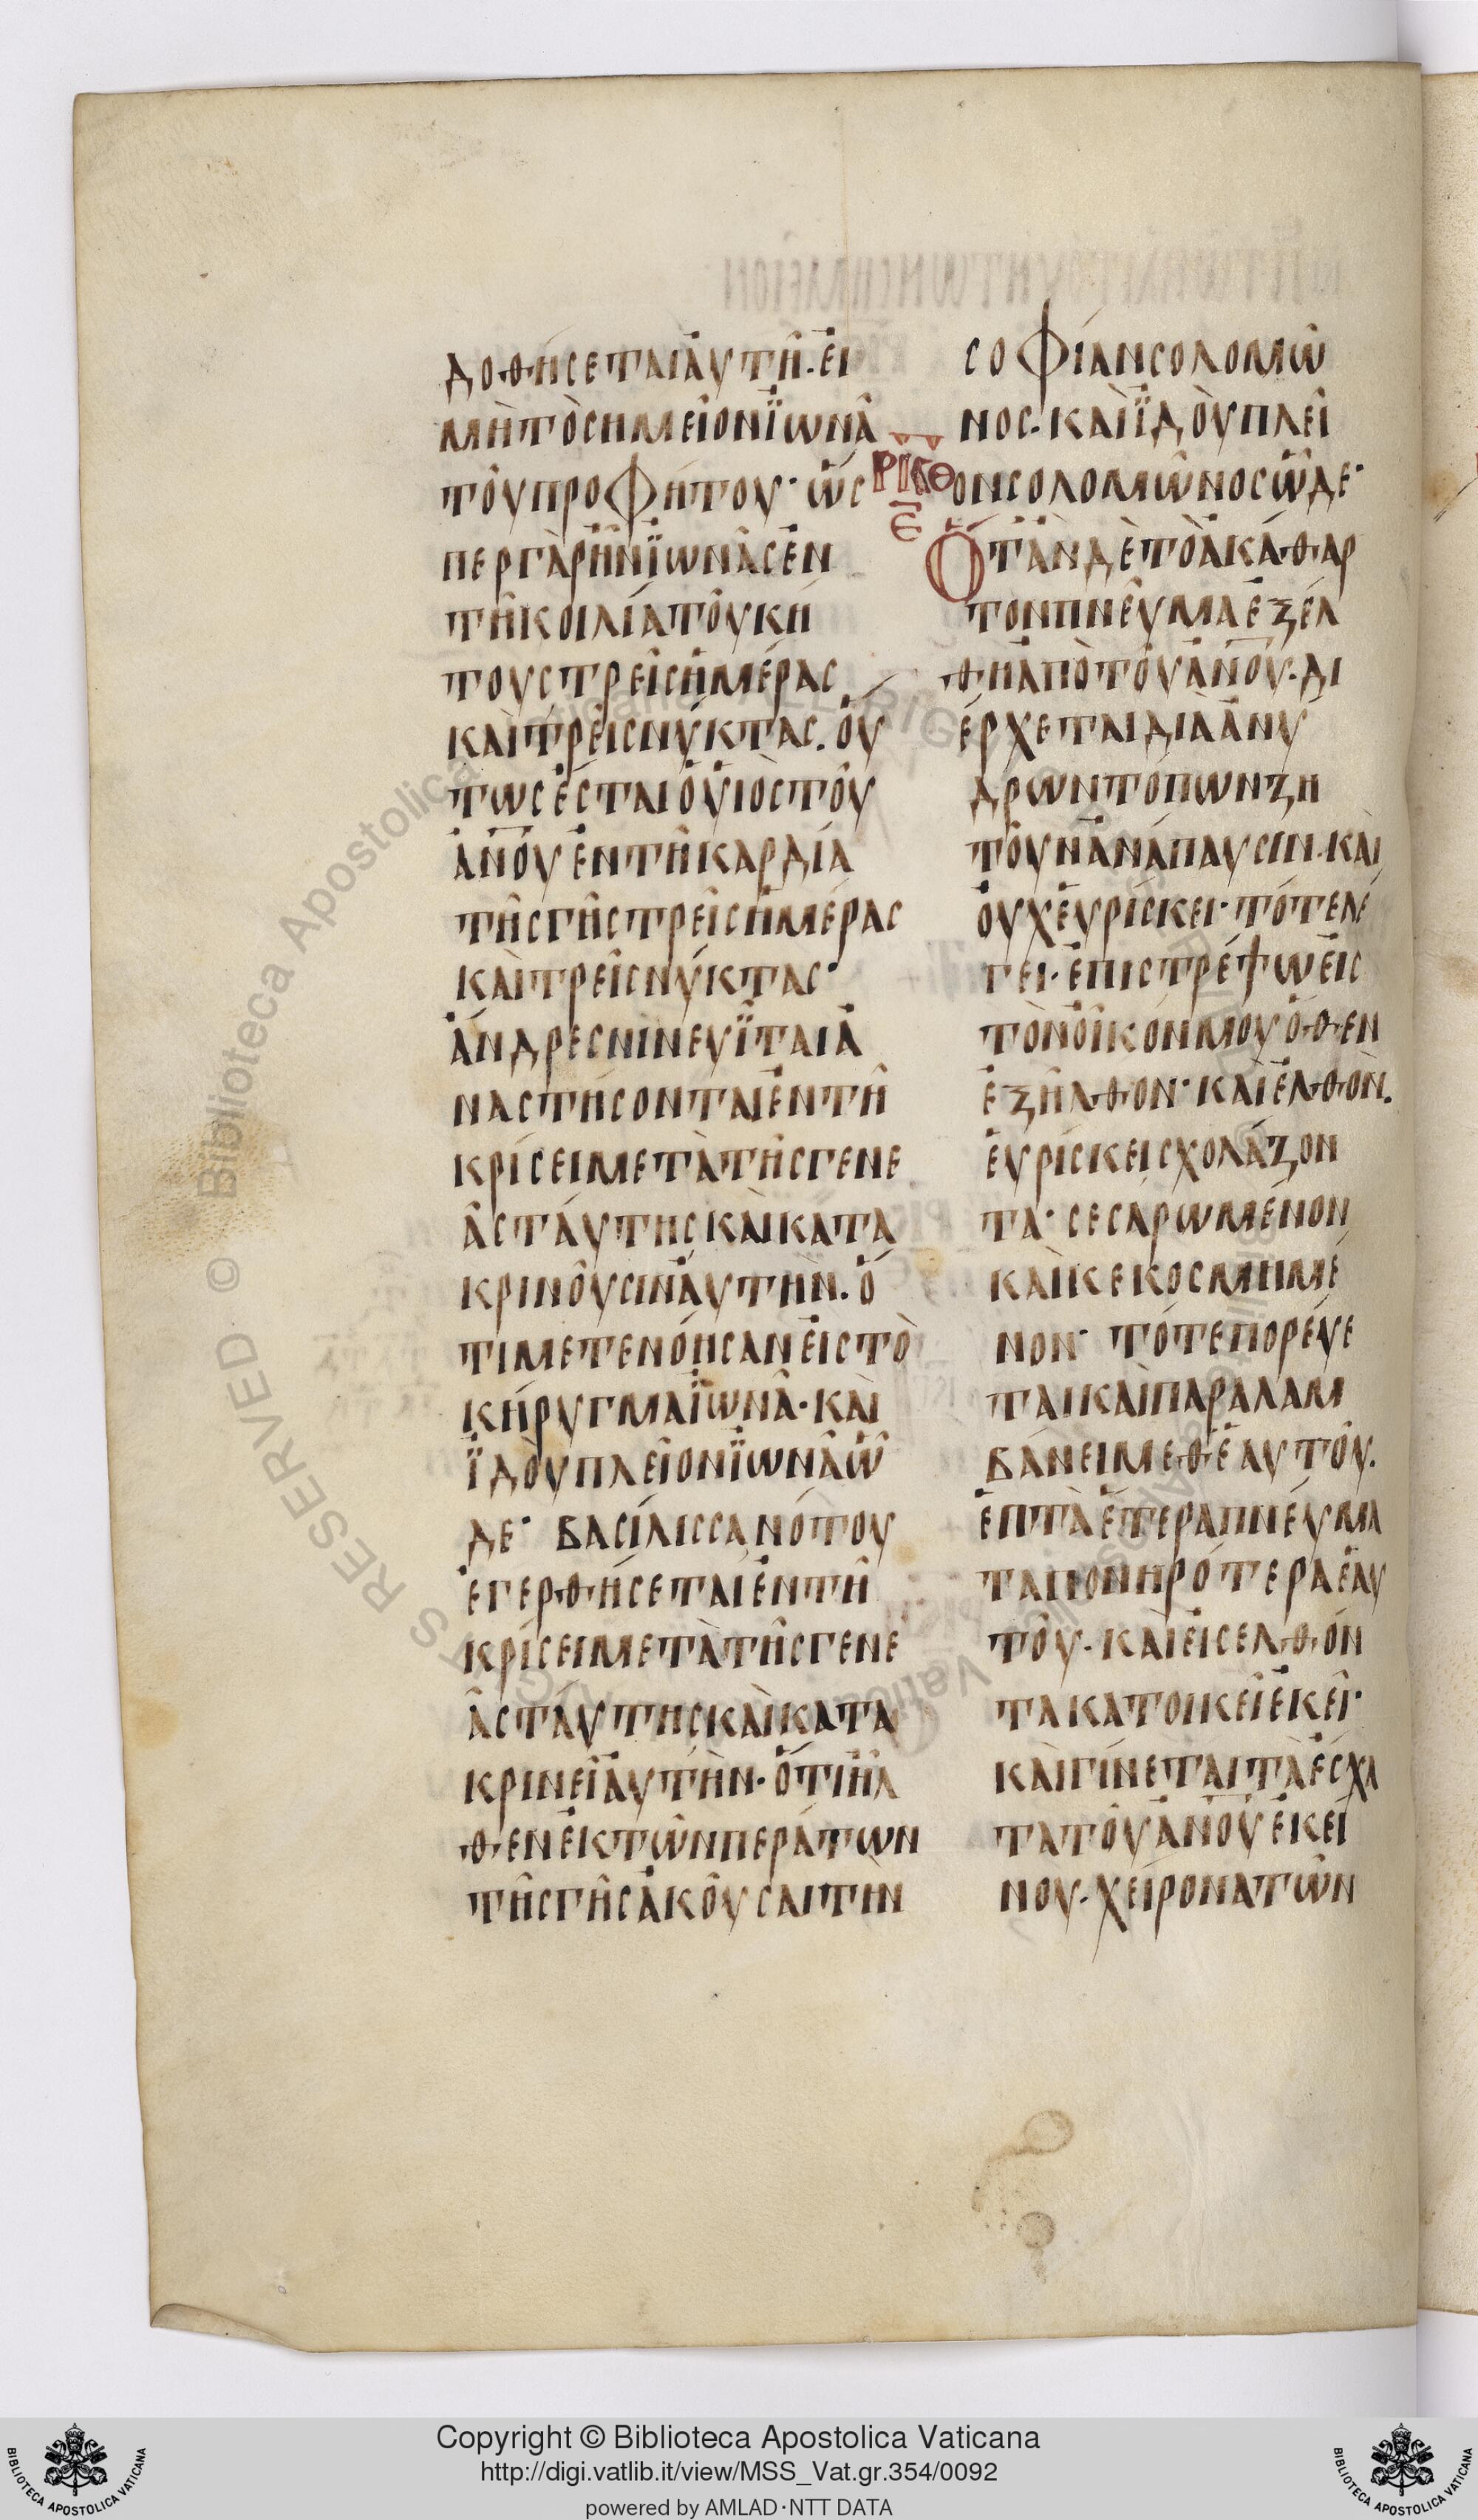 δοθήσεται ἀυτῆ· εἰ
μὴ τὸ σημεῖον ϊωνᾶ
τοῦ προφήτου· ὥσ
περ γὰρ ἦν ϊωνᾶς ἐν
τῆ κοιλία τοῦ κή
τους τρεῖς ἡμέρας
καὶ τρεῖς νύκτας. οὕ
τως ἔσται ὁ υἱὸς τοῦ
ἀν̅ο̅υ̅ ἐν τῆ καρδία
τῆς γῆς τρεῖς ἡμέρας
καὶ τρεῖς νύκτας·
ἄνδρες νινευϊται ἀ
ναστήσονται ἐν τῆ
κρίσει μετὰ τῆς γενε
ᾶς ταύτης καὶ κατα
κρινοῦσιν ἀυτὴν. ὅ
τι μετενόησαν εἰς τὸ
κήρυγμα ϊωνᾶ· καὶ
ϊδοὺ πλεῖον ϊωνᾶ ὧ
δε· βασίλισσα νότου
ἐγερθήσεται ἐν τῆ
κρίσει μετὰ τῆς γενε
ᾶς ταύτης καὶ κατα
κρινεῖ ἀυτὴν· ὅτι ἦλ
θεν ἐκ τῶν περάτων
τῆς γῆς ἀκοῦσαι τὴν
σοφίαν σολομῶ
νος· καὶ ϊδοὺ πλεῖ
ΡΚΘ ον σολομῶνος ὧδε·
Ε
Ὅταν δὲ τὸ ἀκάθαρ
τον πνεῦμα ἐξέλ
θη ἀπὸ τοῦ ἀν̅ο̅υ̅· δι
έρχεται δια ἀνύ
δρων τόπων ζη
τοῦν ἀνάπαυσιν· καὶ
ὀυχ ἑυρίσκει· τότε λέ
γει· ἐπιστρέψω εἰς
τὸν οἶκον μου ὅθεν
ἐξῆλθον· καὶ ἐλθὸν.
ἑυρίσκει σχολάζον
τα· σεσαρωμένον
καὶ κεκοσμημέ
νον· τότε πορεύε
ται καὶ παραλαμ
βάνει μεθ ἑαυτοῦ.
ἑπτὰ ἕτερα πνεύμα
τα πονηρότερα ἑαυ
τοῦ· καὶ εἰσελθόν
τα κατοικεῖ ἐκεῖ·
καὶ γίνεται τὰ ἔσχα
τα τοῦ ἀν̅ο̅υ̅ ἐκεί
νου· χείρονα τῶν
Copyright © Biblioteca Apostolica Vaticana
http://digi.vatlib.it/view/MSS_Vat.gr.354/0092
powered by AMLAD·NTT DATA
BIBLIOTECA APOSTOLICA VATICANA
BIBLIOTECA APOSTOLICA VATICANA